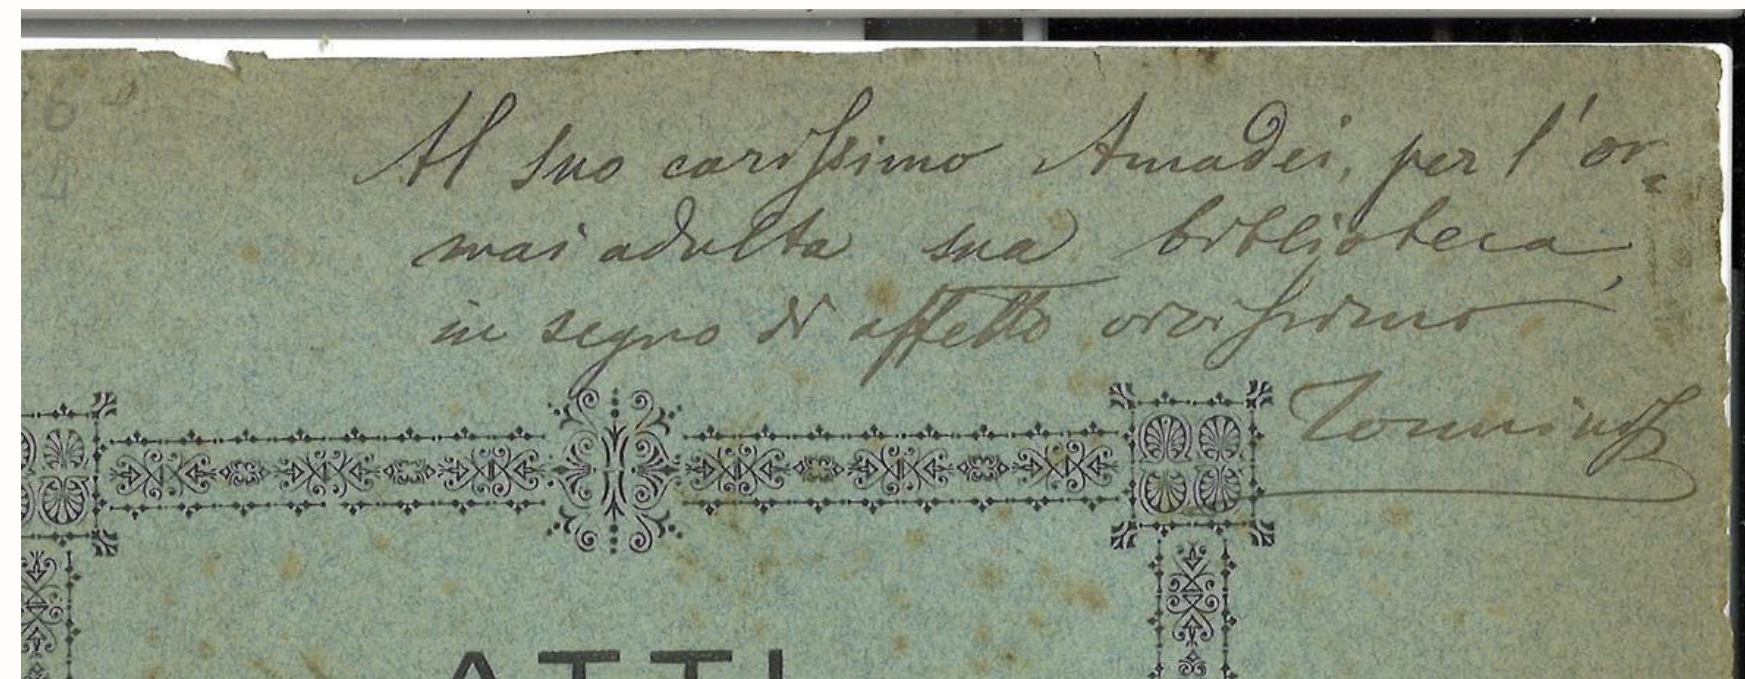 Al suo carissimo Amadei, per l'or-
mai adulta sua biblioteca,
in segno di affetto vivissimo
ATTI